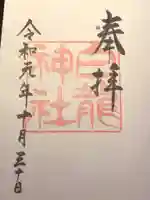 奉拝
白龍神社
令和元年十月三十日